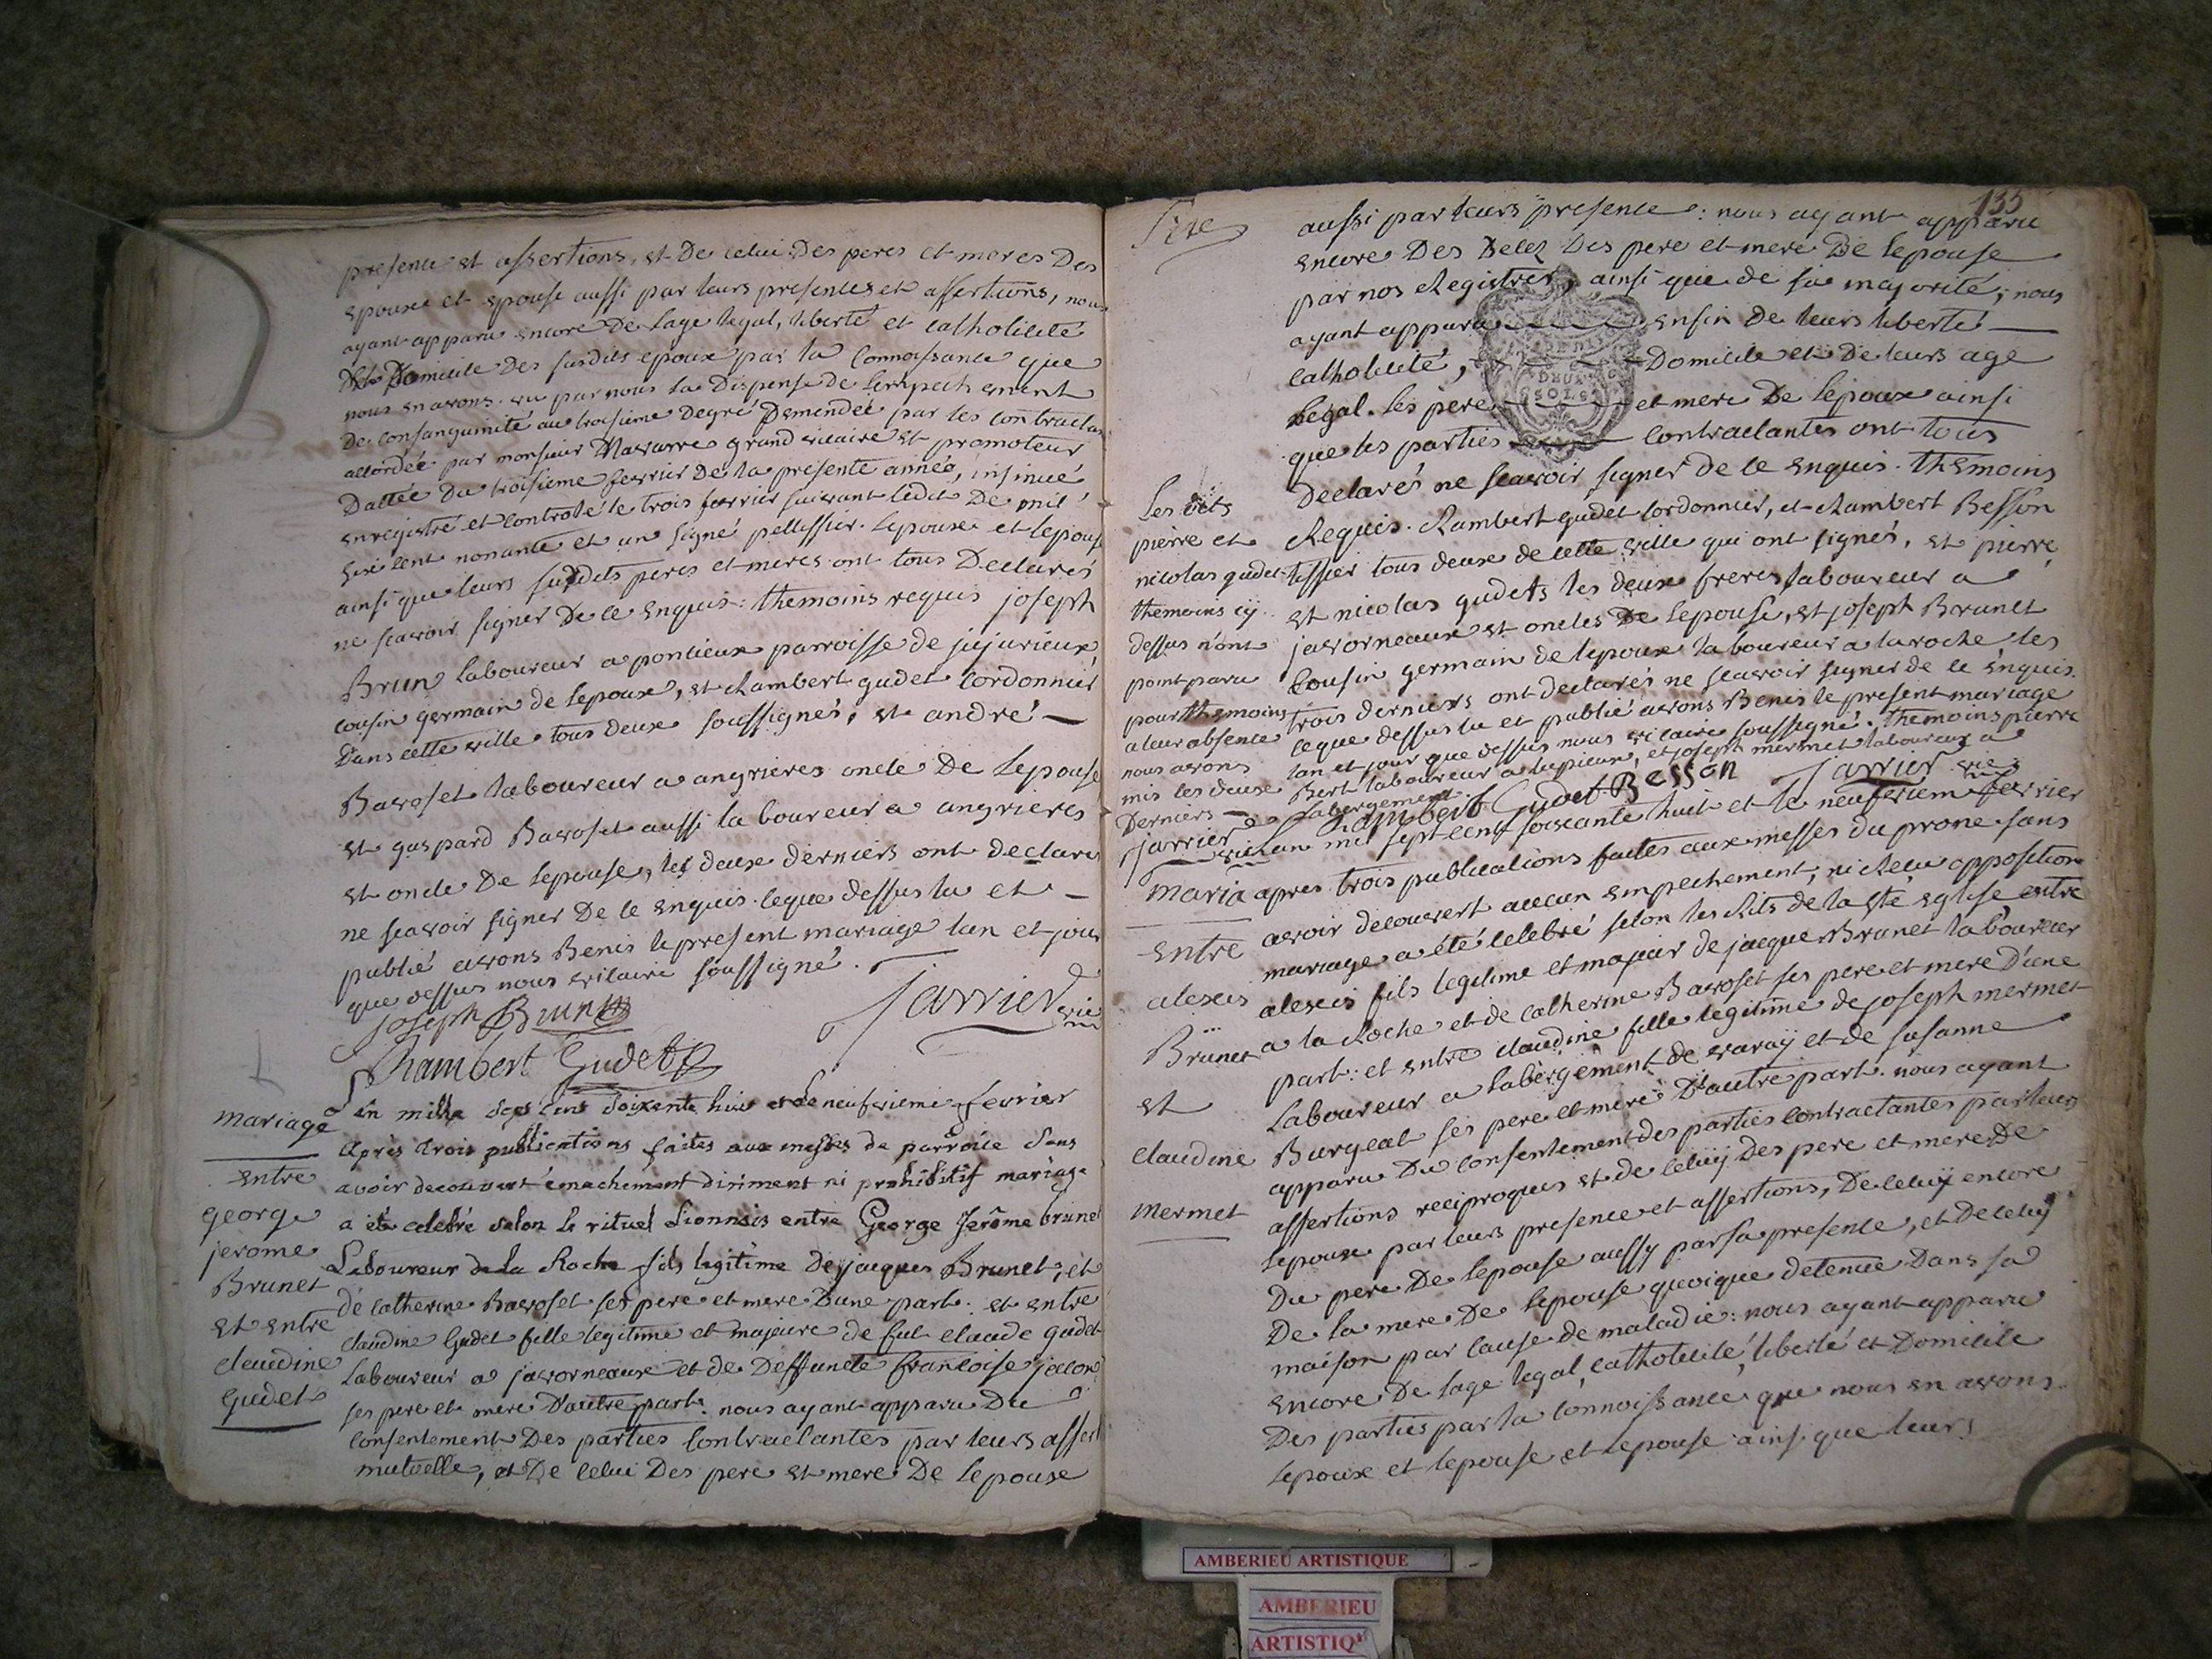 presence et assertions, et De celui Des peres et meres Des
epoux et epouse aussi par leurs presences et assertions, nous
ayant apparu encore De Lage legal, liberté et catholicité
Et Domicile Des susdits epoux par la Connoissance que
nous en avons. vu par nous la Dispense de Lempechement
De Consanguinité au troisieme Degré Demendée par les Contractans
accordée par monsieur Navarre grand vicaire et promoteur
Dattée Du troisieme fevrier De la presente année, insinué
enregistré et controlé le trois fevrier suivant ledit De mil
six cent nonante et un signé pellissier. Lepoux et lepouse
ainsi que leurs susdits peres et meres ont tous Declarés
ne scavoir signer De ce enquis: themoins requis joseph
Brun laboureur a poncieux parroisse de jujurieux,
cousin germain de lepoux, et Rambert gudet Cordonnier
Dans cette ville tous deux soussignés, et andré
Bavoset laboureur a angrieres oncle De Lepouse
et gaspard Bavoset aussi laboureur a angrieres
et oncle De lepouse, les deux derniers ont declarés
ne scavoir signer De ce enquis. ceque dessus lu et
publié avons Benis le present mariage lan et jour
que dessus nous vicaire soussigné.
joseph Brun
Jarrier vic
Rambert Gudet
mariage
entre
george
jerome
Brunet
et entre
claudine
Gudet
Lan mille sept cent soixante huit et le neufvieme fevrier
après trois publications faites aux messes de parroice sans
avoir decouvert émpechement dirimant ni prohibitif mariage
a été celebré selon le rituel Lionnois entre George Jerôme brunet
Laboureur de La Roche fils legitime de jacques Brunet, et
de catherine Bavoset ses pere et mere D'une part: et entre
claudine Gudet fille legitime et majeure de fut claude gudet
laboureur a javorneaux et de Deffuncte francoise jacon
ses pere et mere D'autre part: nous ayant apparu Du
consentement Des parties Contractantes par leurs assert
mutuelle, et De celui Des pere et mere De lepoux
135
aussi par leurs presence: nous ayant apparu
encore Des Decez Des pere et mere De lepouse
par nos Registres, ainsi que de sa majorité; nous
ayant apparu enfin De leurs liberté
catholicité, Domicile et De leurs age
Legal. les pere et mere De lepoux ainsi
que les parties contractantes ont tous
DEUX
SOLS
Declarés ne scavoir signer de ce enquis. themoins
Requis. Rambert gudet cordonnier, et Rambert Besson
tissier tous deux de cette ville qui ont signés, et pierre
et nicolas gudets les deux freres laboureur a
javorneaux et oncles De lepouse, et joseph Brunet
Cousin germain de lepoux laboureur a laroche les
trois derniers ont declarés ne scavoir signer de ce enquis.
ceque dessus lu et publié avons Benis le present mariage
lan et jour que dessus nous vicaire soussigné. themoins pierre
Bert laboureur a lupieux, et joseph mermet laboureur a
Labergement.
Les dits
pierre et
nicolas gudet
themoins cy
dessus n'ont
point paru
pour themoins
a leur absence
nous avons
mis les deux
Derniers
jarrier vic
Rambert Gudet Besson
Jarrier vic
maria
entre
alexis
Brunet
et
claudine
mermet
Lan mil sept cent soixante huit et le neufviem fevrier
apres trois publications faites aux messes du prone sans
avoir decouvert aucun empechement, ni Recu opposition
mariage a été celebré selon les Rits de la Ste eglise entre
alexis fils legitime et majeur de jacque Brunet laboureur
a la Roche et de catherine Bavoset ses pere et mere D'une
part: et entre claudine fille legitime de joseph mermet
Laboureur a labergement de varay et de susanne
Burgeat ses pere et mere D'autre part. nous ayant
apparu Du consentement des parties contractantes par leurs
assertions reciproques et de celuy Des pere et mere De
lepoux par leurs presence et assertions, De celuy encore
Du pere De lepouse aussy par sa presence, et De celuy
De la mere De lepouse quoique detenue Dans sa
maison par cause de maladie: nous ayant apparu
encore De lage legal, catholicité, liberté et Domicile
Des parties par la connoissance que nous en avons.
Lepoux et lepouse ainsi que leurs
AMBERIEU ARTISTIQUE
AMBERIEU
ARTISTIQ